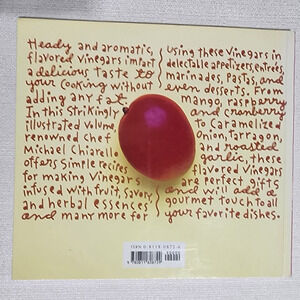 Heady and aromatic,
flavored vinegars impart
a delicious taste to
your cooking without
adding any fat.
In this strikingly
illustrated volume,
renowned chef
Michael Chiarello
offers simple recipes
for making vinegars
infused with fruit, savory,
and herbal essences
and many more for
using these vinegars in
delectable appetizers, entrées,
marinades, pastas, and
even desserts. From
mango, raspberry
and cranberry
to caramelized
onion, tarragon
and roasted
garlic, these
flavored vinegars
are perfect gifts
and will add a
gourmet touch to all
your favorite dishes.